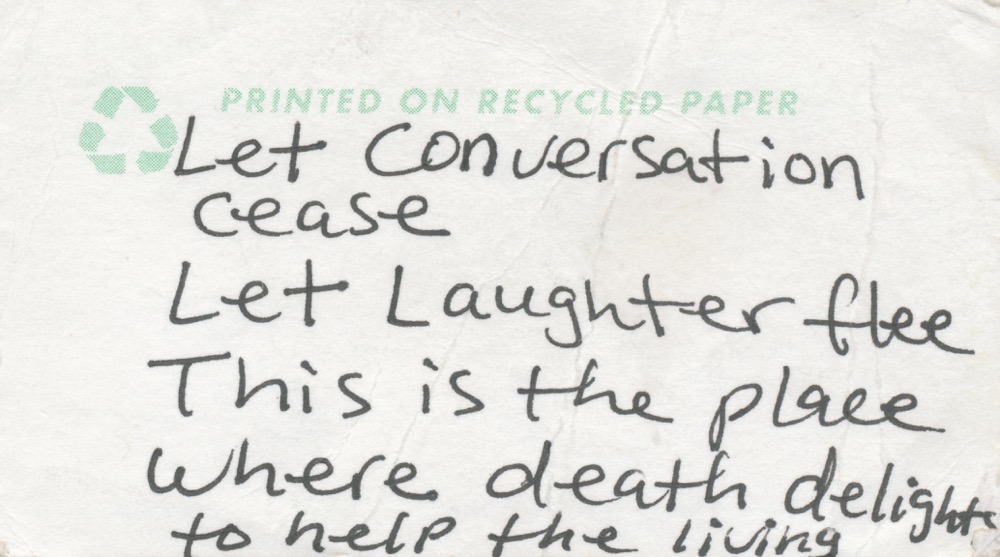 PRINTED ON RECYCLED PAPER
Let Conversation
cease
Let Laughter flee
This is the place
where death delights
to help the living